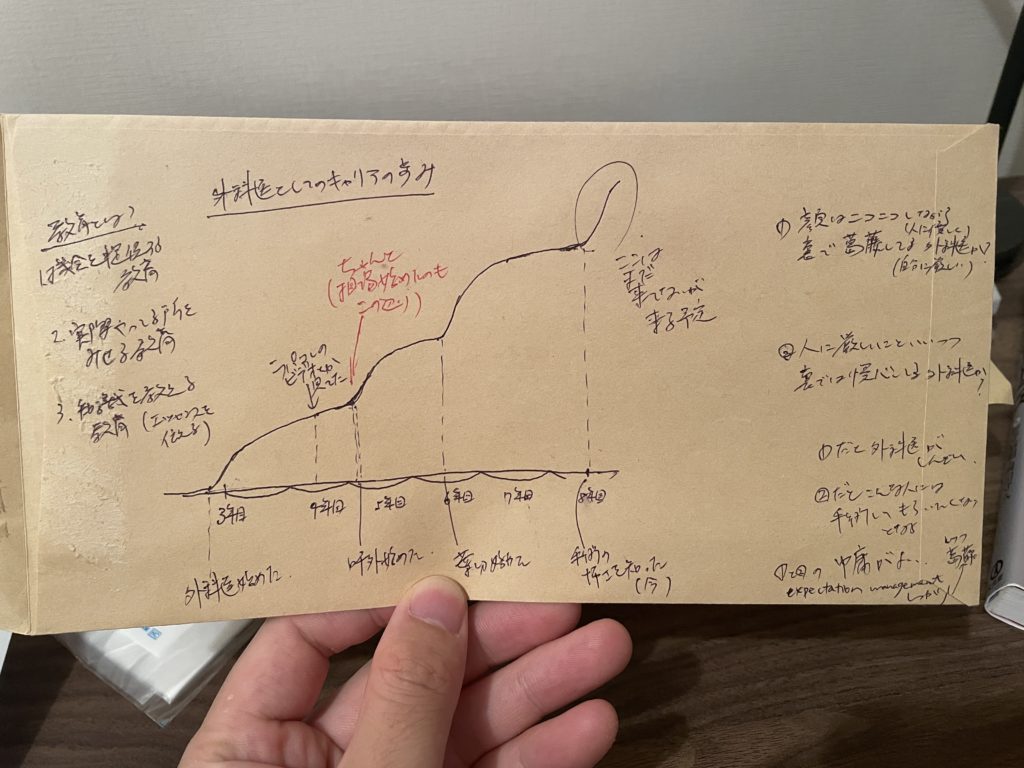 外科医としてのキャリアの歩み
教育とは?
1. 機会を提供する
教育
2. 実際やってる所を
みせる教育
3. 知識を教える
教育(エッセンスを
伝える)
ラパコレの
ビデオ
ちゃんと
(指導始めたのも
このへん)
ここは
まだ
来てないが
来る予定
3年目
4年目
5年目
6年目
7年目
8年目
外科医始めた
呼外始めた
葉切始めた
手術の
怖さを知った
(今)
① 顔はニコニコしながら
(人に優しく)
裏で葛藤してる外科医か?
(自分に厳しい)
② 人に厳しいこといいつつ
裏では慢心してる外科医か?
①だと外科医が
しんどい
②だとこんな人には
手術してもらいたくない
となる
①と②の中庸がよい
という葛藤
expectation management
しっかり